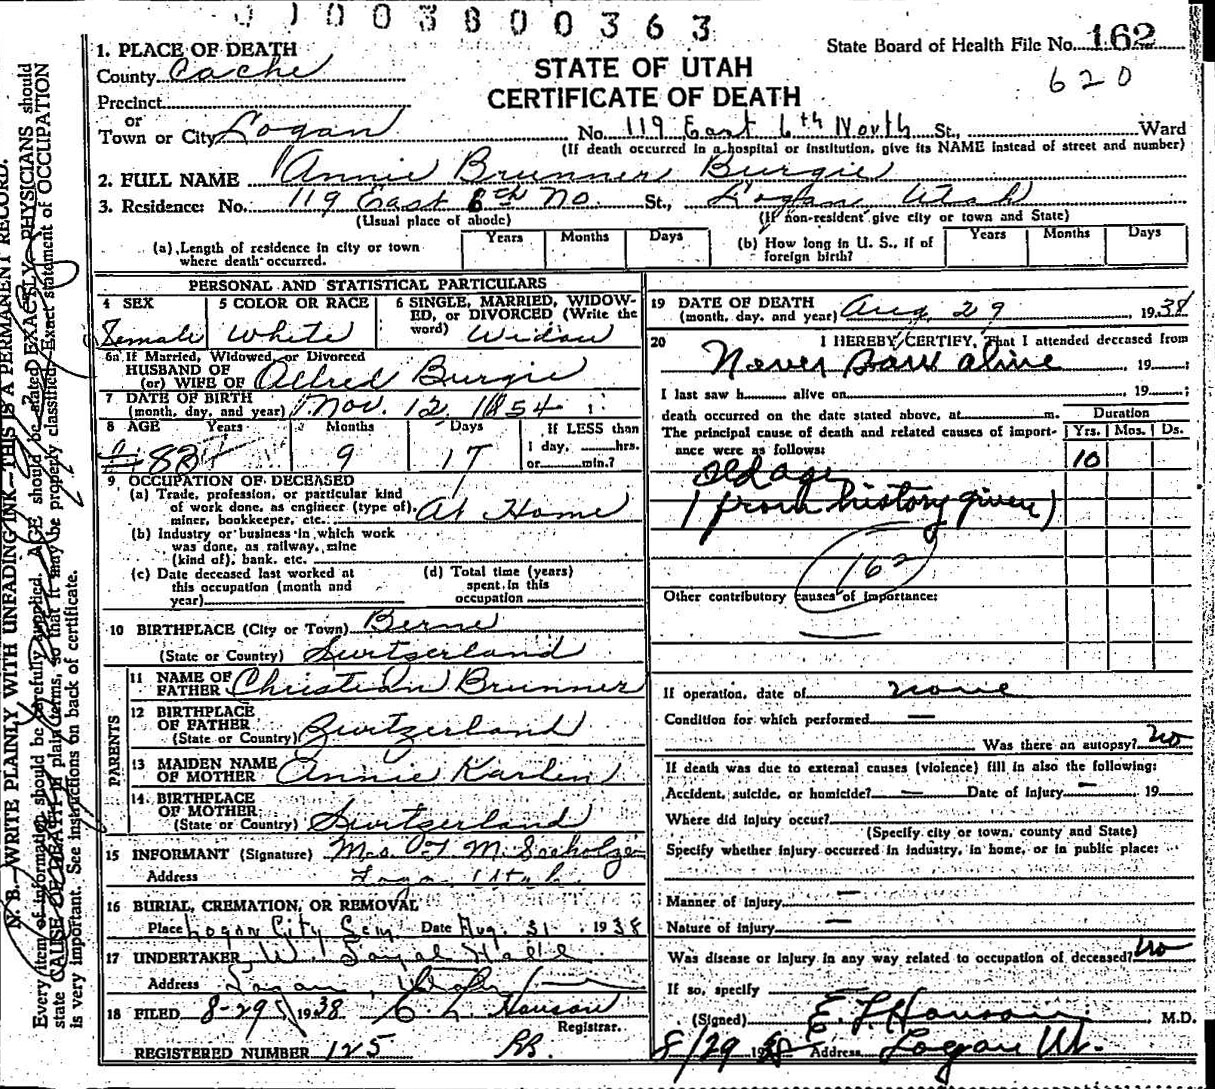 0 1 0 0 3 8 0 0 3 6 3
State Board of Health File No. 162
620
STATE OF UTAH
CERTIFICATE OF DEATH
1. PLACE OF DEATH
County Cache
Precinct
or
Town or City Logan No. 119 East 6th North St., Ward
(If death occurred in a hospital or institution, give its NAME instead of street and number)
2. FULL NAME Annie Brunner Burgie
3. Residence: No. 119 East 6th No. St., Logan, Utah
(Usual place of abode) (If non-resident give city or town and State)
(a) Length of residence in city or town where death occurred. Years Months Days
(b) How long in U. S., if of foreign birth? Years Months Days
PERSONAL AND STATISTICAL PARTICULARS
4 SEX Female
5 COLOR OR RACE White
6 SINGLE, MARRIED, WIDOWED, or DIVORCED (Write the word) Widow
6a If Married, Widowed, or Divorced
HUSBAND OF
(or) WIFE OF Alfred Burgie
7 DATE OF BIRTH
(month, day, and year) Nov. 12, 1854
8 AGE Years Months Days If LESS than
83 9 17 1 day, hrs.
or min.?
9 OCCUPATION OF DECEASED
(a) Trade, profession, or particular kind
of work done, as engineer (type of),
miner, bookkeeper, etc. At Home
(b) Industry or business in which work
was done, as railway, mine
(kind of), bank, etc.
(c) Date deceased last worked at
this occupation (month and
year)
(d) Total time (years)
spent in this
occupation
10 BIRTHPLACE (City or Town) Berne
(State or Country) Switzerland
PARENTS
11 NAME OF
FATHER Christian Brunner
12 BIRTHPLACE
OF FATHER
(State or Country) Switzerland
13 MAIDEN NAME
OF MOTHER Annie Karlen
14 BIRTHPLACE
OF MOTHER
(State or Country) Switzerland
15 INFORMANT (Signature) Mrs. M. Seeholzer
Address Logan, Utah
16 BURIAL, CREMATION, OR REMOVAL
Place Logan City Cem Date Aug. 31 1938
17 UNDERTAKER W. Hall
Address Logan, Utah
18 FILED 8-29 1938
Registrar.
REGISTERED NUMBER 125
19 DATE OF DEATH
(month, day, and year) Aug. 29 1938
20 I HEREBY CERTIFY, That I attended deceased from
Never saw alive, 19 ;
I last saw h alive on , 19 ;
death occurred on the date stated above, at m.
The principal cause of death and related causes of importance were as follows:
Duration
Yrs. Mos. Ds.
Old age 10
(from history given)
162
Other contributory causes of importance:
If operation, date of none
Condition for which performed —
Was there an autopsy? no
If death was due to external causes (violence) fill in also the following:
Accident, suicide, or homicide? — Date of injury — 19
Where did injury occur?
(Specify city or town, county and State)
Specify whether injury occurred in industry, in home, or in public place:
Manner of injury —
Nature of injury —
Was disease or injury in any way related to occupation of deceased? No
If so, specify
(Signed) M.D.
8/29 1938 Address Logan Ut.
N. B. WRITE PLAINLY WITH UNFADING INK—THIS IS A PERMANENT RECORD.
Every item of information should be carefully supplied. AGE should be stated EXACTLY. PHYSICIANS should
state CAUSE OF DEATH in plain terms, so that it may be properly classified. Exact statement of OCCUPATION
is very important. See instructions on back of certificate.